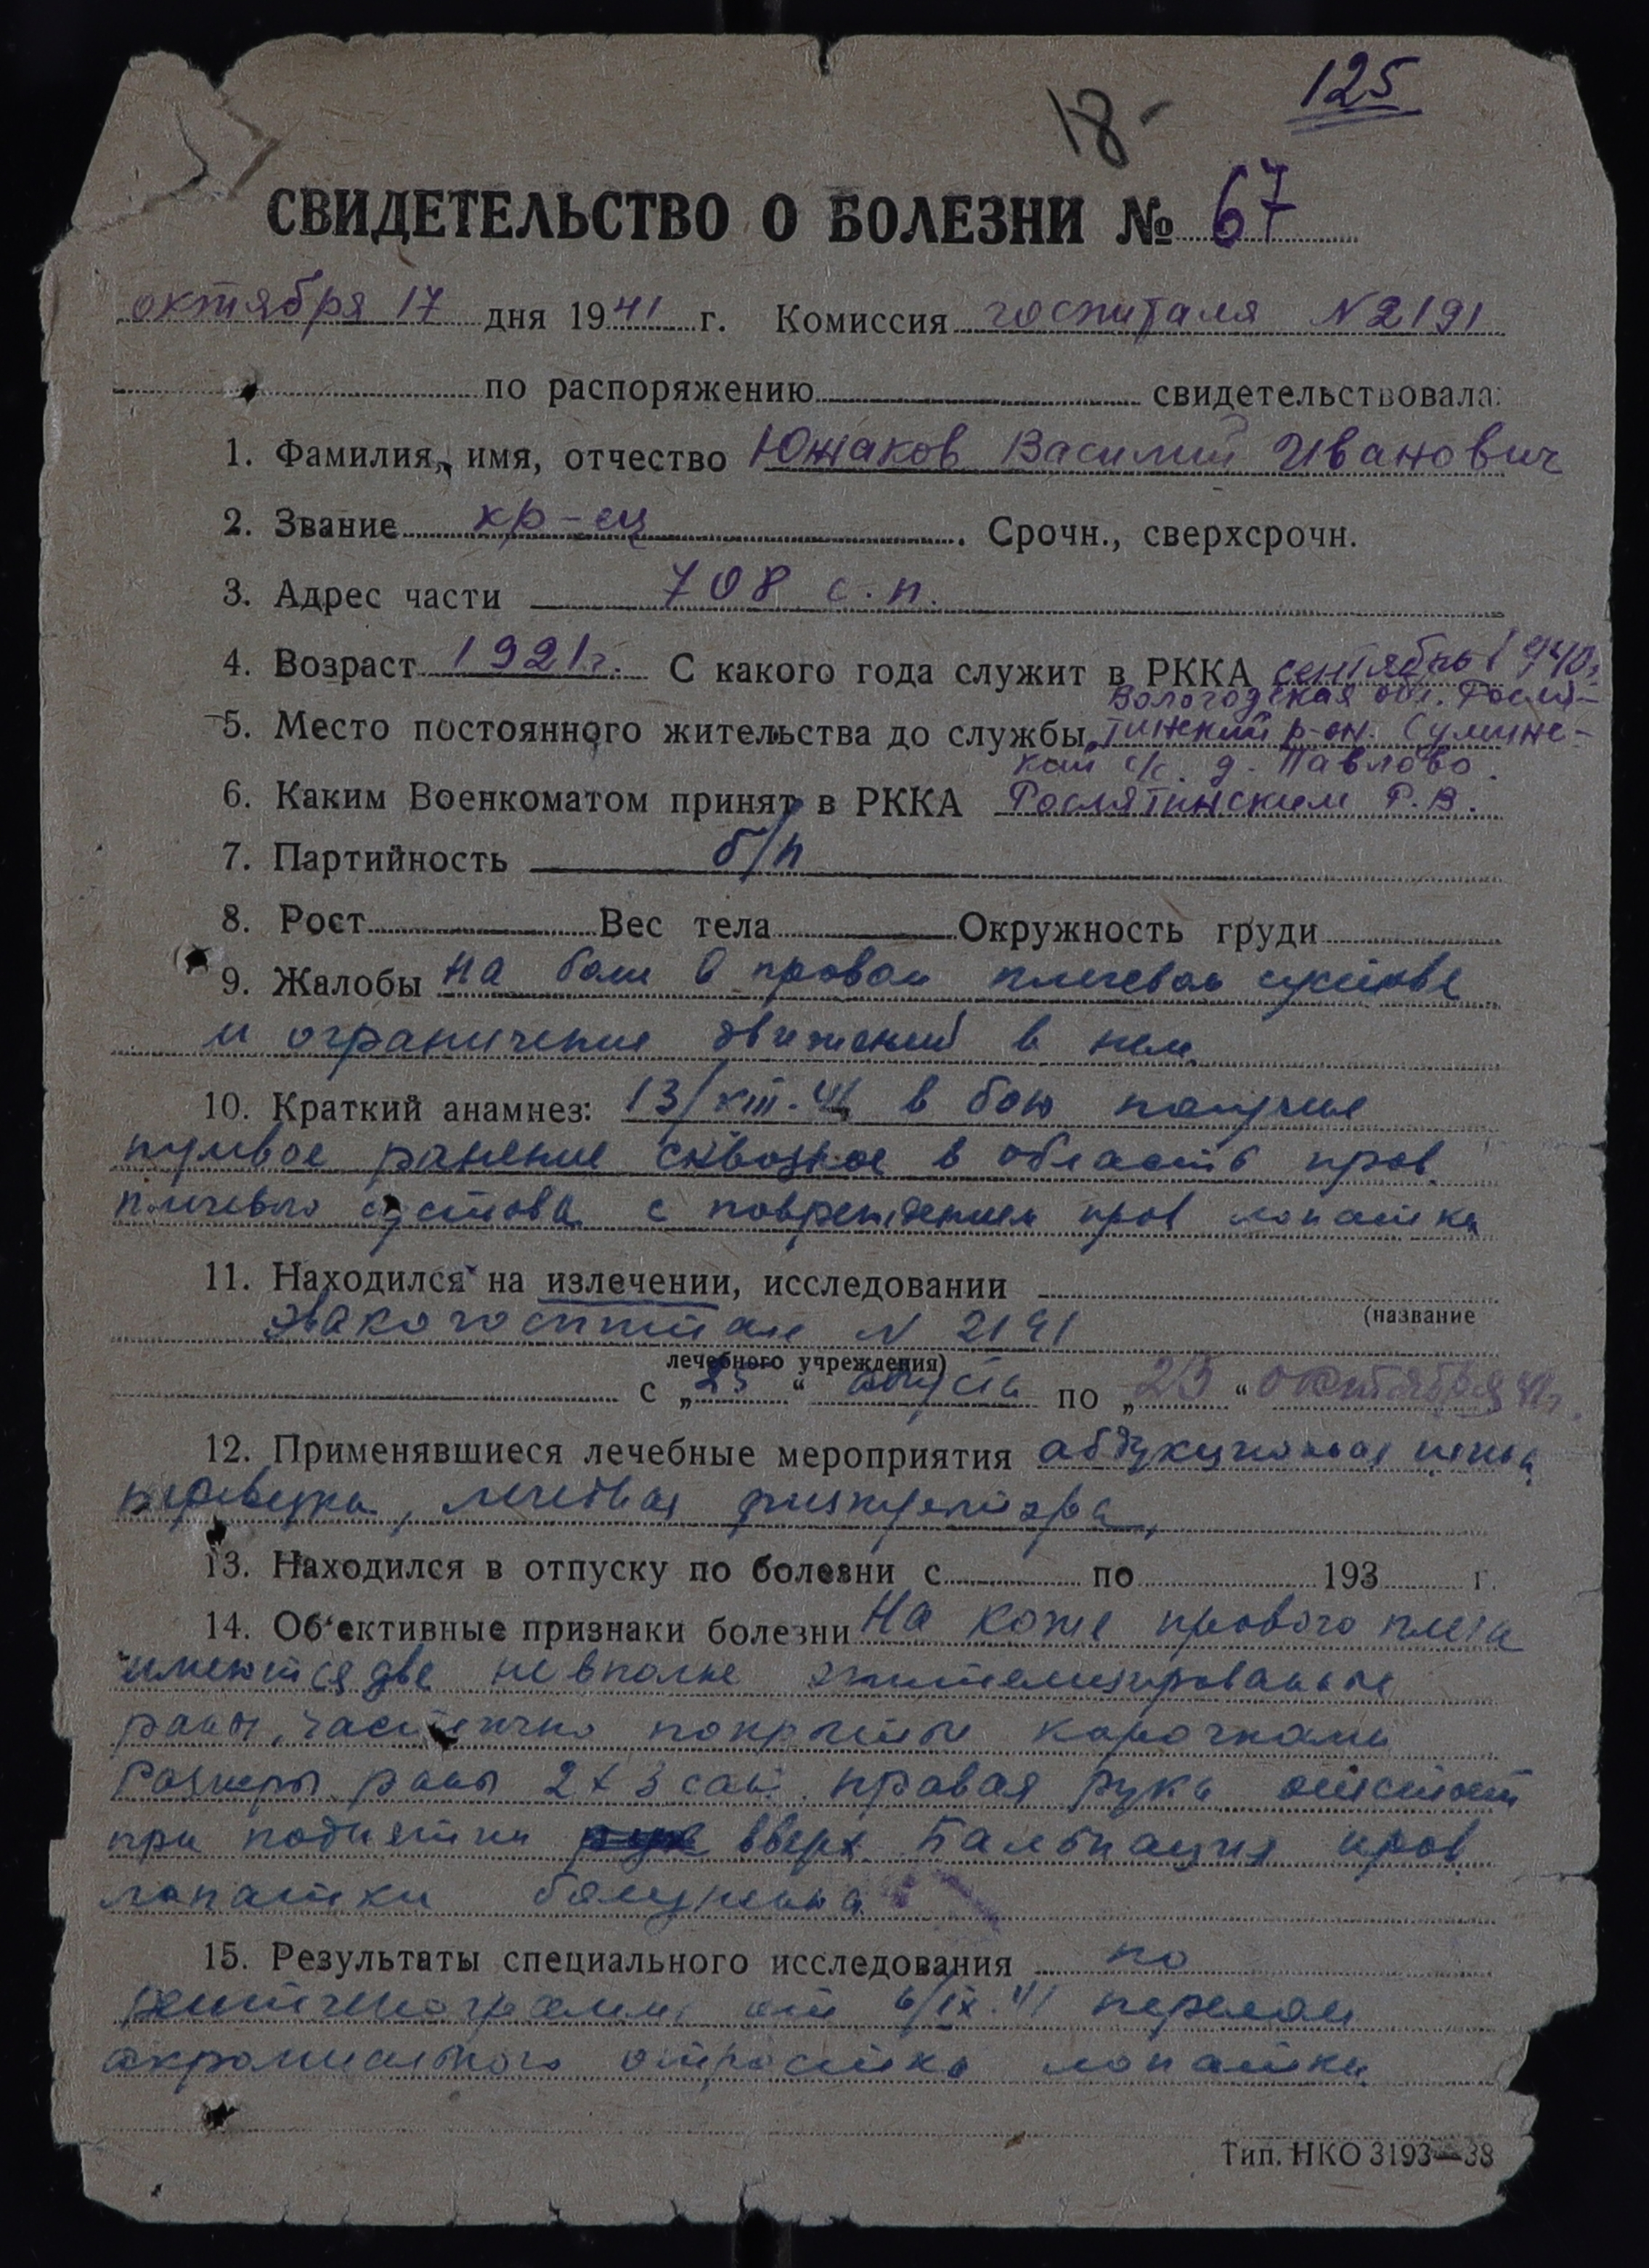 125
18-
СВИДЕТЕЛЬСТВО О БОЛЕЗНИ № 67
октября 17 дня 1941 г. Комиссия госпиталя N 2191
по распоряжению свидетельствовала:
1. Фамилия, имя, отчество Южаков Василий Иванович
2. Звание кр-ец. Срочн., сверхсрочн.
3. Адрес части 708 с.п.
4. Возраст 1921г. С какого года служит в РККА сентябрь 1940г
Вологодская обл.Росля-
5. Место постоянного жительства до службы, тинский р-он. Сулинс-
кий с/с. д. Павлово.
6. Каким Военкоматом принят в РККА Рослятинским Р.В.
7. Партийность б/п
8. Рост Вес тела Окружность груди
9. Жалобы На боли в правом плечевом суставе
и ограничение движений в нем
10. Краткий анамнез: 13/VIII-41 в бою получил
пулевое ранение сквозное в область прав.
плечевого сустава с повреждением прав лопатки
11. Находился на излечении, исследовании
(название
эвакогоспитале N 2191
лечебного учреждения)
с „25“ августа по „25“ октября 41г.
12. Применявшиеся лечебные мероприятия абдукционная шина,
перевязки, лечебная физкультура,
13. Находился в отпуску по болезни с по 193 г.
14. Об'ективные признаки болезни На коже правого плеча
имеются две не вполне эпителизированные
раны, частично покрытые корочками
Размеры раны 2х3 сант. правая рука отстает
при поднятии вверх. Пальпация прав.
лопатки болезненна
15. Результаты специального исследования по
рентгенограмме от 6/IX-41 перелом
акромиального отростка лопатки
Тип. НКО 3193—38